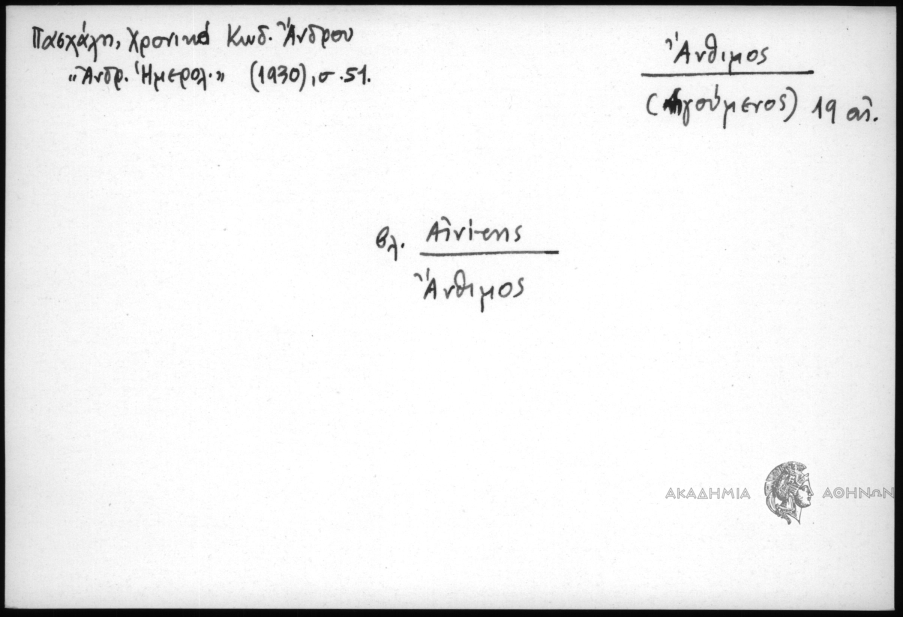 Πασχάλη, Χρονικά Κωδ. Ἄνδρου
"Ἀνδρ. Ἡμερολ." (1930), σ. 51.
Ἄνθιμος
(ἡγούμενος) 19 αἰ.
βλ. Αἰνίτης
Ἄνθιμος
ΑΚΑΔΗΜΙΑ ΑΘΗΝΩΝ